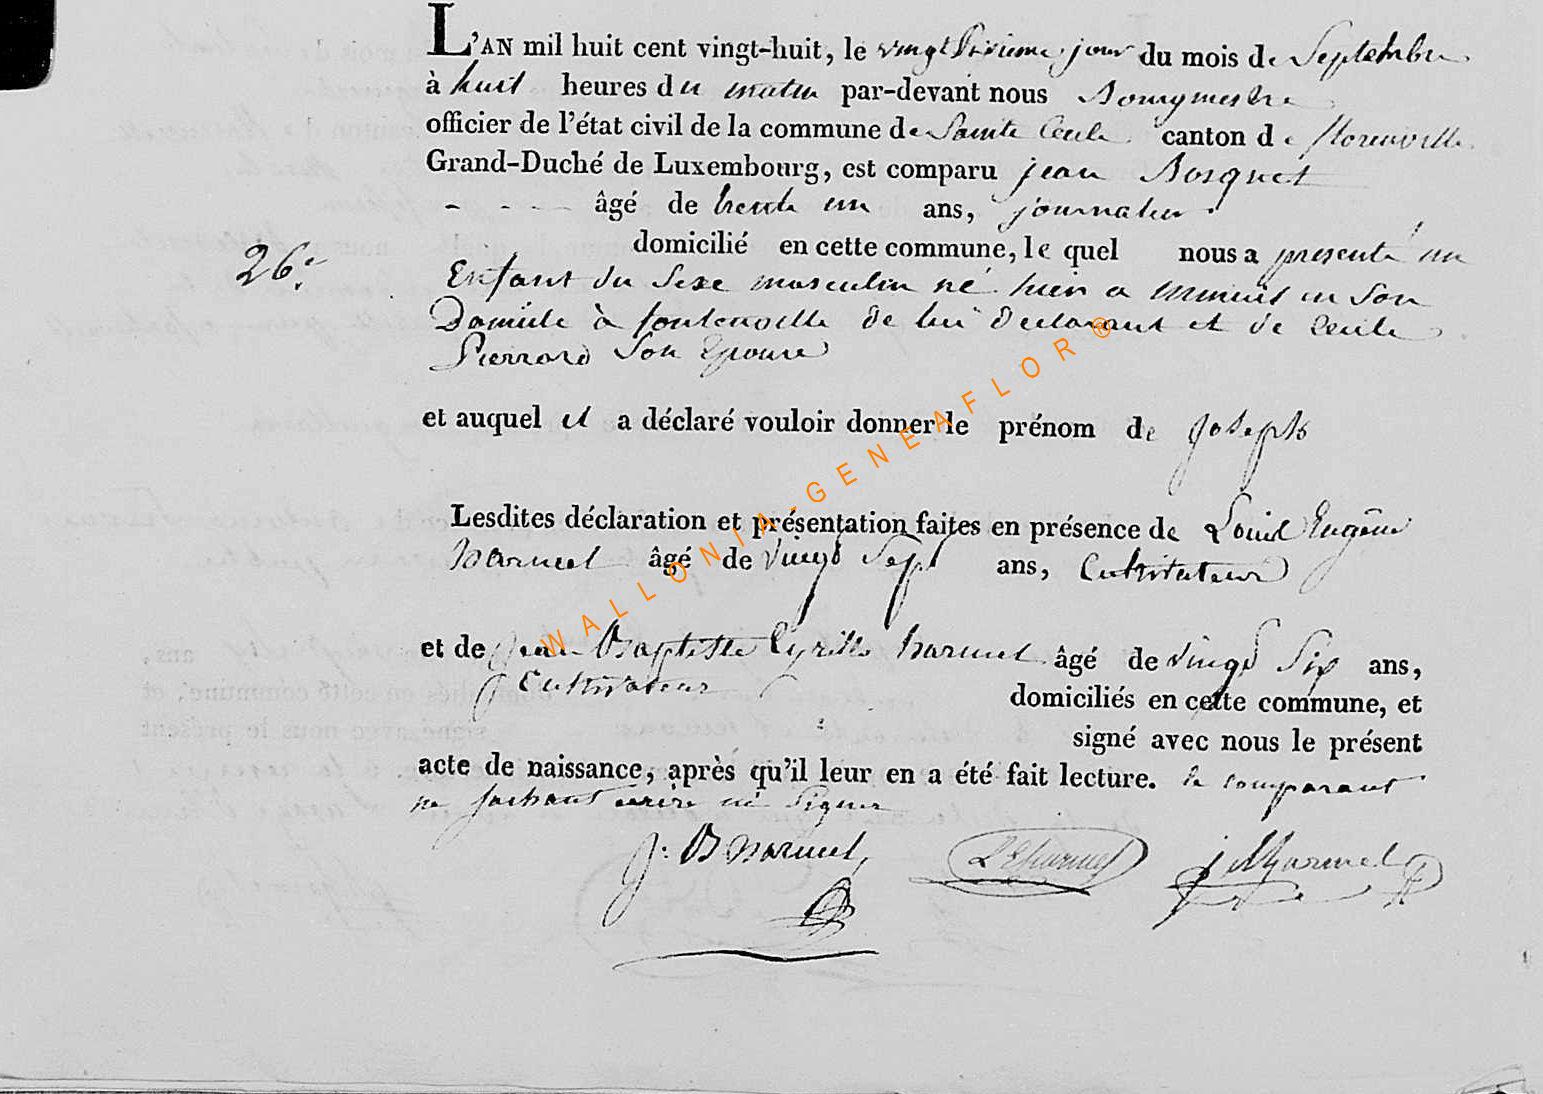 L'AN mil huit cent vingt-huit, le vingt sixieme jour du mois de Septembre
à huit heures du matin par-devant nous Bourgmestre
officier de l'état civil de la commune de Sainte Cecile canton de florenville
Grand-Duché de Luxembourg, est comparu jean Bosquet
âgé de trente un ans, journalier
domicilié en cette commune, le quel nous a presenté un
26e
Enfant du Sexe masculin né hier a minuit en Son
Domicile à fontenoille de lui Declarant et de Cecile
Pierrard Son Epouse
et auquel il a déclaré vouloir donner le prénom de joseph
Lesdites déclaration et présentation faites en présence de Louis Eugêne
harmel âgé de Vingt Sept ans, Cultivateur
et de jean Baptiste Cyrille harmel âgé de vingt Six ans,
Cultivateur
domiciliés en cette commune, et
signé avec nous le présent
acte de naissance, après qu'il leur en a été fait lecture. le comparant
ne sachant ecrire ni Signer
j: B harmel, L E harmel j harmel
WALLONIA-GENEAFLOR®